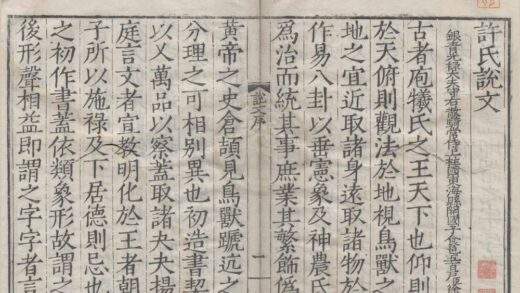 許氏說文
銀青光祿大夫守右散騎常侍上柱國東海縣開國子食邑五百戶臣徐
古者庖犧氏之王天下也仰則
於天俯則觀法於地視鳥獸之
地之宜近取諸身遠取諸物於
作易八卦以垂憲象及神農氏
爲治而統其事庶業其繁飾僞
說文序
一
黃帝之史倉頡見鳥獸蹏迒之
分理之可相別異也初造書契
以乂萬品以察蓋取諸夬夬揚
庭言文者宣教明化於王者朝
子所以施祿及下居德則忌也
之初作書蓋依類象形故謂之
後形聲相益即謂之字字者言